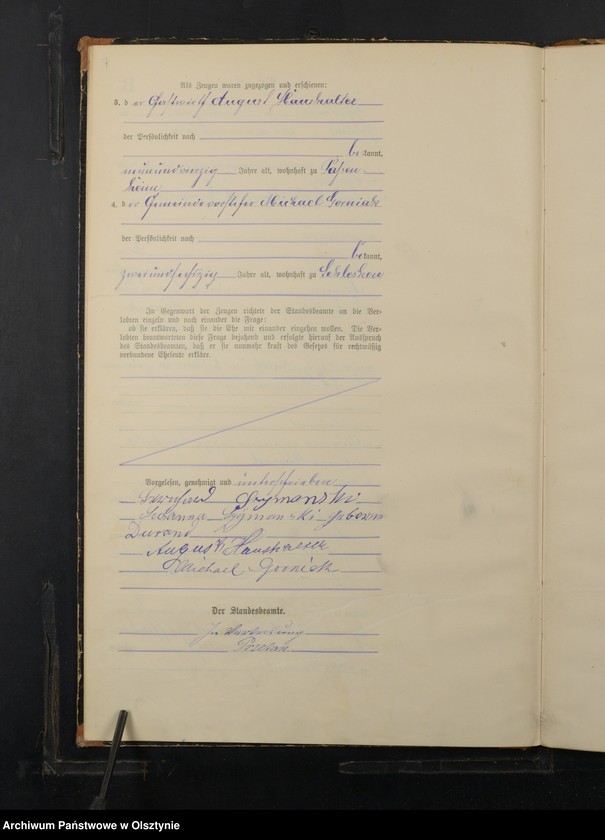 Als Zeugen waren zugezogen und erschienen:
3. der Gastwirt August Haushalter
der Persönlichkeit nach
be kannt,
neunundvierzig Jahre alt, wohnhaft zu
heim
4. der Gemeindevorsteher Michael Gorniak
der Persönlichkeit nach
be kannt,
zweiundsechszig Jahre alt, wohnhaft zu
In Gegenwart der Zeugen richtete der Standesbeamte an die Ver-
lobten einzeln und nach einander die Frage:
ob sie erklären, daß sie die Ehe mit einander eingehen wollen. Die Ver-
lobten beantworteten diese Frage bejahend und erfolgte hierauf der Ausspruch
des Standesbeamten, daß er sie nunmehr kraft des Gesetzes für rechtmäßig
verbundene Eheleute erkläre.
Vorgelesen, genehmigt und unterschrieben
Szymanski
Susanna Szymanski geboren
Durand
August Haushalter
Michael Gorniak
Der Standesbeamte.
In Vertretung
Archiwum Państwowe w Olsztynie